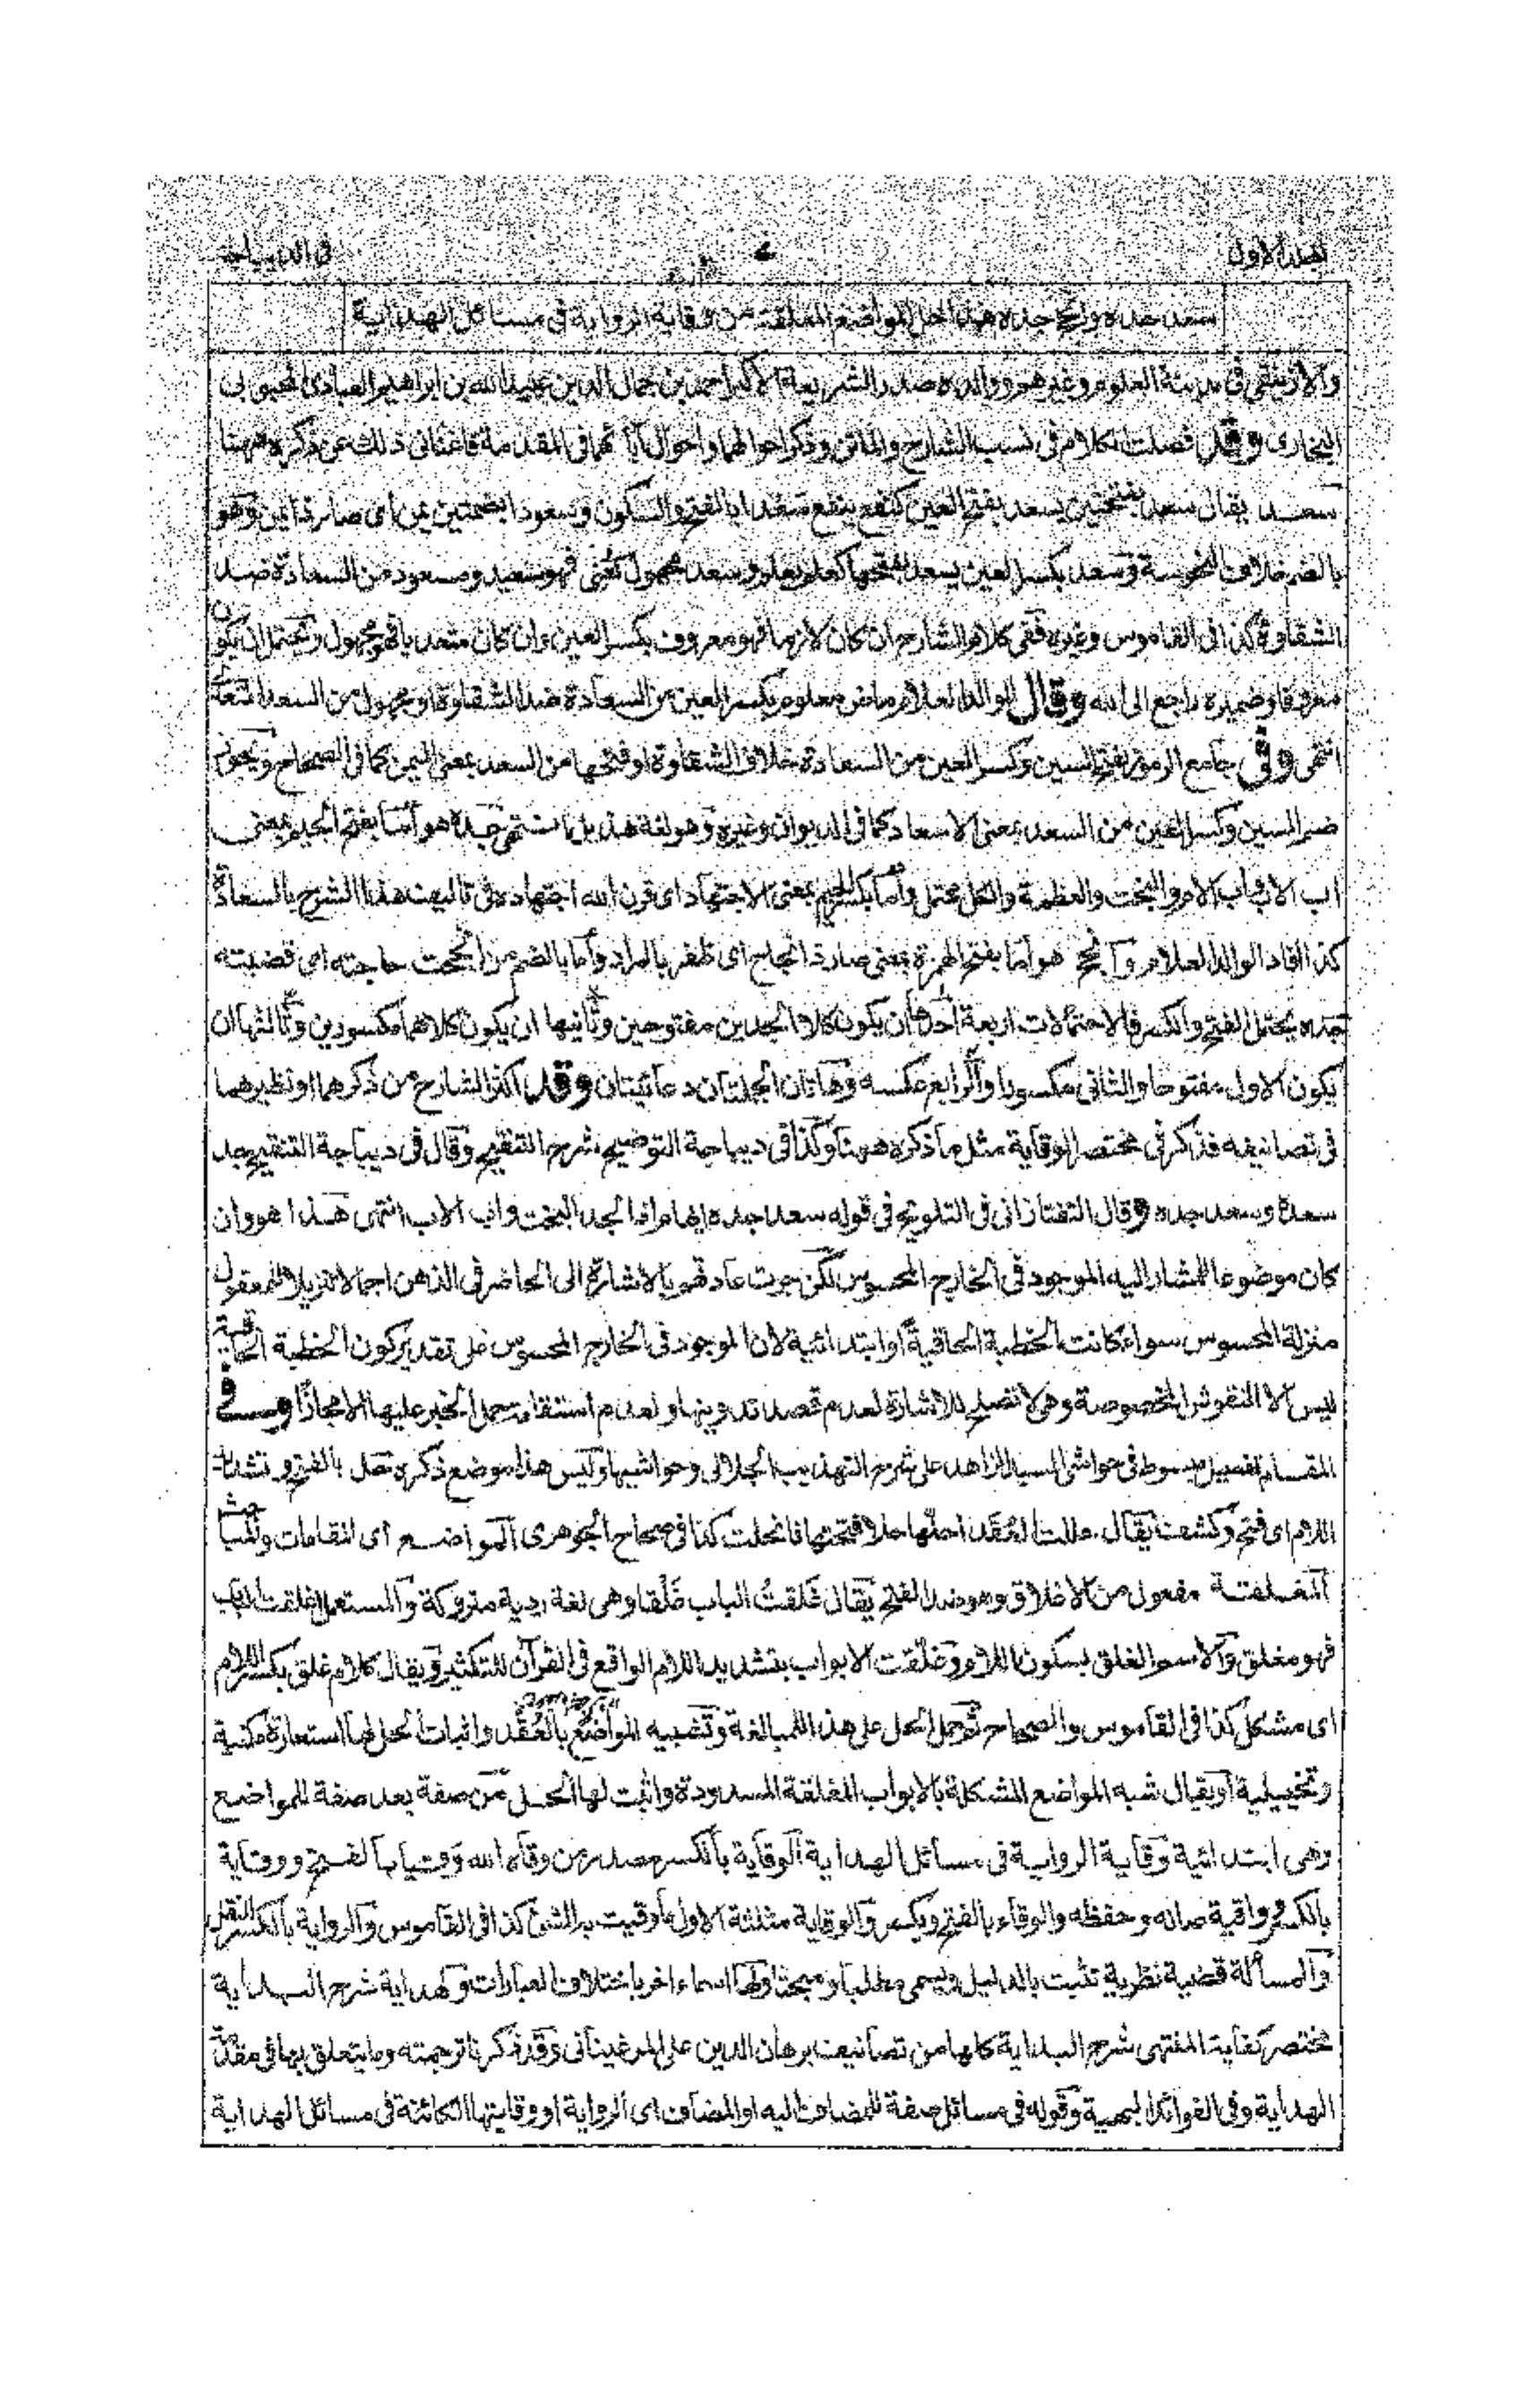 المجلد الاول
في الديباجة
سعد جده وانجح جده هذا حل المواضع المغلقة من وقاية الرواية في مسائل الهداية
والازنيقى فى مدينة العلوم وغيرهم ووالده صدر الشريعة الاكبر احمد بن جمال الدين عبيد الله بن ابراهيم العبادى المحبوبى
البخارى وقد فصلت الكلام فى نسب الشارح والماتن وذكر احوالهما واحوال آبائهما فى المقدمة فاغنانى ذلك عن ذكره ههنا
سعد يقال سعد بفتحتين يسعد بفتح العين كنفع ينفع سعدا بالفتح والسكون وسعودا بضمتين اى صار ذا يمن وهو
بالضم خلاف النحوسة وسعد بكسر العين يسعد بفتحها كعلم يعلم وسعد مجهول كعنى فهو سعيد ومسعود من السعادة ضد
الشقاوة كذا فى القاموس وغيره ففى كلام الشارح ان كان لازما فهو معروف بكسر العين وان كان متعديا فهو مجهول ويحتمل ان يكون
معروفا وضميره راجع الى الله وقال الوالد العلام ماض معلوم بكسر العين من السعادة ضد الشقاوة او مجهول من السعد
انتهى وفى جامع الرموز بفتح السين وكسر العين من السعادة خلاف الشقاوة او فتحها من السعد بمعنى اليمن كما فى الصحاح ويجوز
ضم السين وكسر العين من السعد بمعنى الاسعاد كما فى الديوان وغيره وهو لغة هذيل انتهى جده هو اما بفتح الجيم بمعنى
اب الاب او اب الام والبخت والعظمة والكل محتمل واما بكسر الجيم بمعنى الاجتهاد اى قرن الله اجتهاده فى تاليف هذا الشرح بالسعادة
كذا افاد الوالد العلام وانجح هو اما بفتح الهمزة بمعنى صار ذا نجاح اى ظفر بالمراد واما بالضم من انجحت حاجته اى قضيته
جده يحتمل الفتح والكسر فالاحتمالات اربعة احدها ان يكون كلا الجدين مفتوحين وثانيها ان يكون كلاهما مكسورين وثالثها ان
يكون الاول مفتوحا والثانى مكسورا والرابع عكسه وهاتان الجملتان دعائيتان وقد اكثر الشارح من ذكرهما او نظيرهما
فى تصانيفه فذكر فى مختصر الوقاية مثل ما ذكره ههنا وكذا فى ديباجة التوضيح شرح التنقيح وقال فى ديباجة التنقيح جد
سعده وسعد جده وقال التفتازانى فى التلويح فى قوله سعد جده ايهام اذ الجد البخت واب الاب انتهى هذا هو وان
كان موضوعا للمشار اليه الموجود فى الخارج المحسوس لكن جرت عادتهم بالاشارة الى الحاضر فى الذهن اجمالا تنزيلا للمعقول
منزلة المحسوس سواء كانت الخطبة الحاقية او ابتدائية لان الموجود فى الخارج المحسوس على تقدير كون الخطبة الحاقية
ليس الا النقوش المخصوصة وهى لا تصلح للاشارة لعدم قصد تدوينها ولعدم استقامة حمل الخبر عليها الا مجازا وفى
المقام تفصيل مبسوط فى حواشى السيد الزاهد على شرح التهذيب الجلالى وحواشيها وليس هذا موضع ذكره حل بالفتح وتشديد
اللام اى فتح وكشف يقال حللت العقد احلها حلا فتحتها فانحلت كذا فى صحاح الجوهرى المواضع اى المقامات والمباحث
المغلقة مفعول من الاغلاق وهو ضد الفتح يقال غلقت الباب غلقا وهى لغة ردية متروكة والمستعمل اغلقت الباب
فهو مغلق والاسم الغلق بسكون اللام وغلقت الابواب بتشديد اللام الواقع فى القرآن للتكثير ويقال كلام غلق بكسر اللام
اى مشكل كذا فى القاموس والصحاح ثم حمل الحل على هذا للمبالغة وتشبيه المواضع بالعقد واثبات الحل لها استعارة مكنية
وتخييلية او يقال شبه المواضع المشكلة بالابواب المغلقة المسدودة واثبت لها الحل من صفة بعد صفة للمواضع
وهى ابتدائية وقاية الرواية فى مسائل الهداية الوقاية بالكسر مصدر من وقاه الله وقيا بالفتح ووقاية
بالكسر وواقية صانه وحفظه والوقاء بالفتح ويكسر والوقاية مثلثة الاول ما وقيت به الشئ كذا فى القاموس والرواية بالكسر النقل
والمسألة قضية نظرية تثبت بالدليل ويسمى مطلبا ومبحثا ولها اسماء اخر باختلاف العبارات والهداية شرح البداية
مختصر كفاية المنتهى شرح البداية كلها من تصانيف برهان الدين على المرغينانى وقد ذكرنا ترجمته وما يتعلق بها فى مقدمة
الهداية وفى الفوائد البهية وقوله فى مسائل صفة للمضاف اليه او المضاف اى الرواية او وقايتها الكائنة فى مسائل الهداية